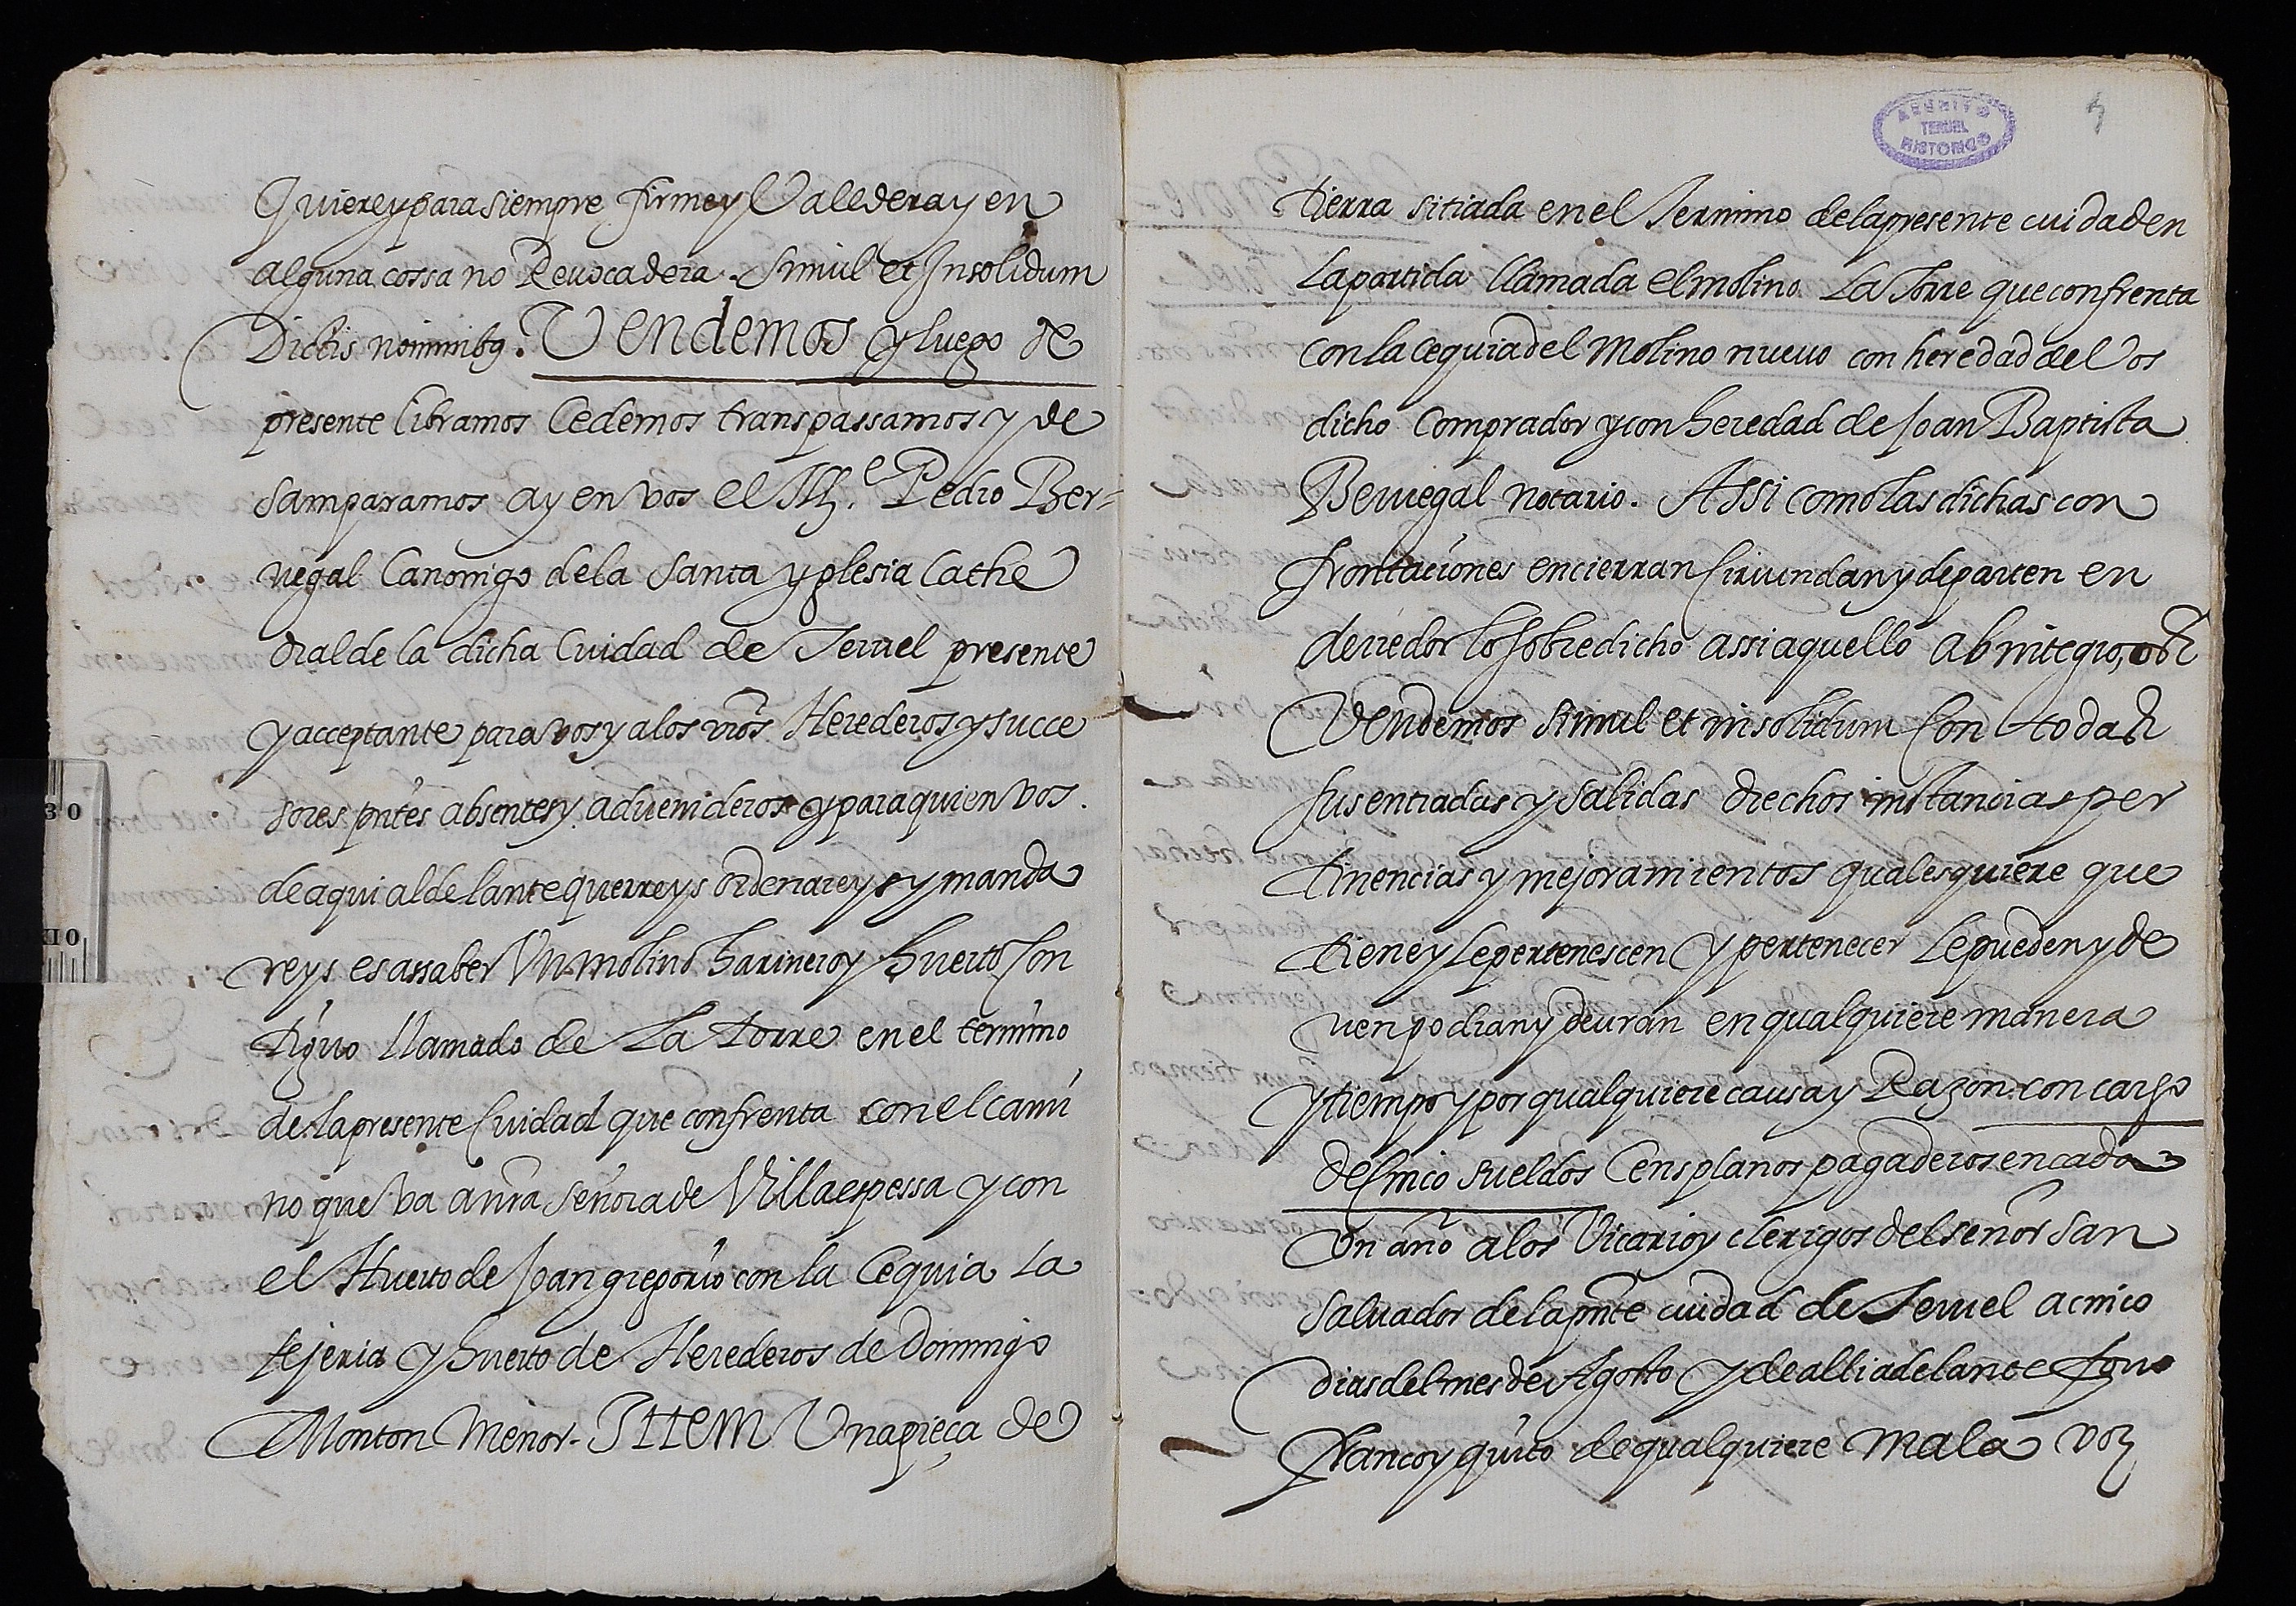 Quiere y para siempre firme y Valedera y en
alguna cossa no Reuocadera. Simul et Insolidum
Dictis nominibꝰ. Vendemos y luego de
presente libramos Cedemos transpassamos y de
samparamos a y en vos el Illᵉ. Pedro Ber-
negal Canonigo de la Santa yglesia Cathe
dral de la dicha Ciudad de Teruel presente
y acceptante para vos y a los vros Herederos y succe
sores pntes absentes y aduenideros y para quien vos.
de aqui al delante querreys ordenareys y manda
reys es assaber Vn molino harinero y huerto con
tiguo llamado de La torre en el termino
de la presente Ciudad que confrenta con el cami
no que va a nra señora de Villaespessa y con
el Huerto de Joan gregorio con la Cequia La
tejeria y huerto de Herederos de Domingo
Monton Menor. Ittem Vna pieça de
tierra sitiada en el Termino de la presente ciudad en
La partida llamada el molino La Torre que confrenta
con la cequia del Molino nueuo con heredad del Vos
dicho Comprador y con heredad de Joan Baptista
Bernegal notario. Assi como las dichas con
frontaciones encierran Circundan y departen en
derredor lo sobredicho assi aquello ab integro, os
Vendemos simul et insolidum Con todas
sus entradas y salidas drechos instancias per
tinencias y mejoramientos qualesquiere que
tiene y le pertenescen y pertenecer le pueden y de
uen podran y deuran en qualquiere manera
y tiempo y por qualquiere causa y Razon. con cargo
de Cinco sueldos Censplanos pagaderos en cada
Vn año a los Vicario y clerigos del señor San
Saluador de la pnte ciudad de Teruel a cinco
dias del mes de Agosto y de alli adelante
Franco y quito de qualquiere mala voz
ARCHIVO
TERUEL
HISTORICO